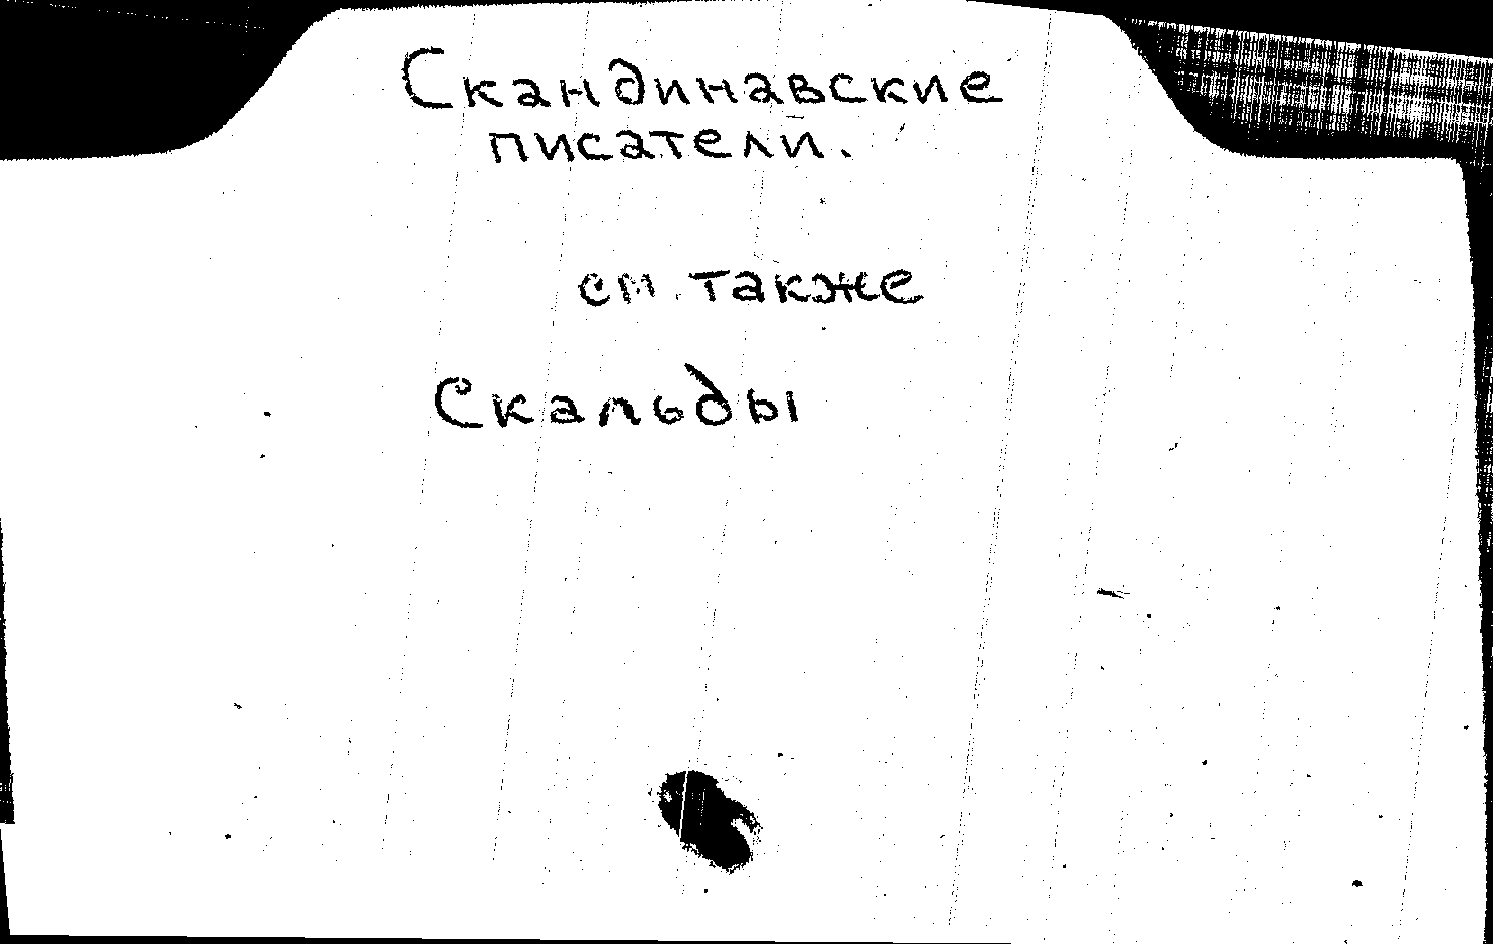 Скандинавские
писатели.
см. также
Скальды